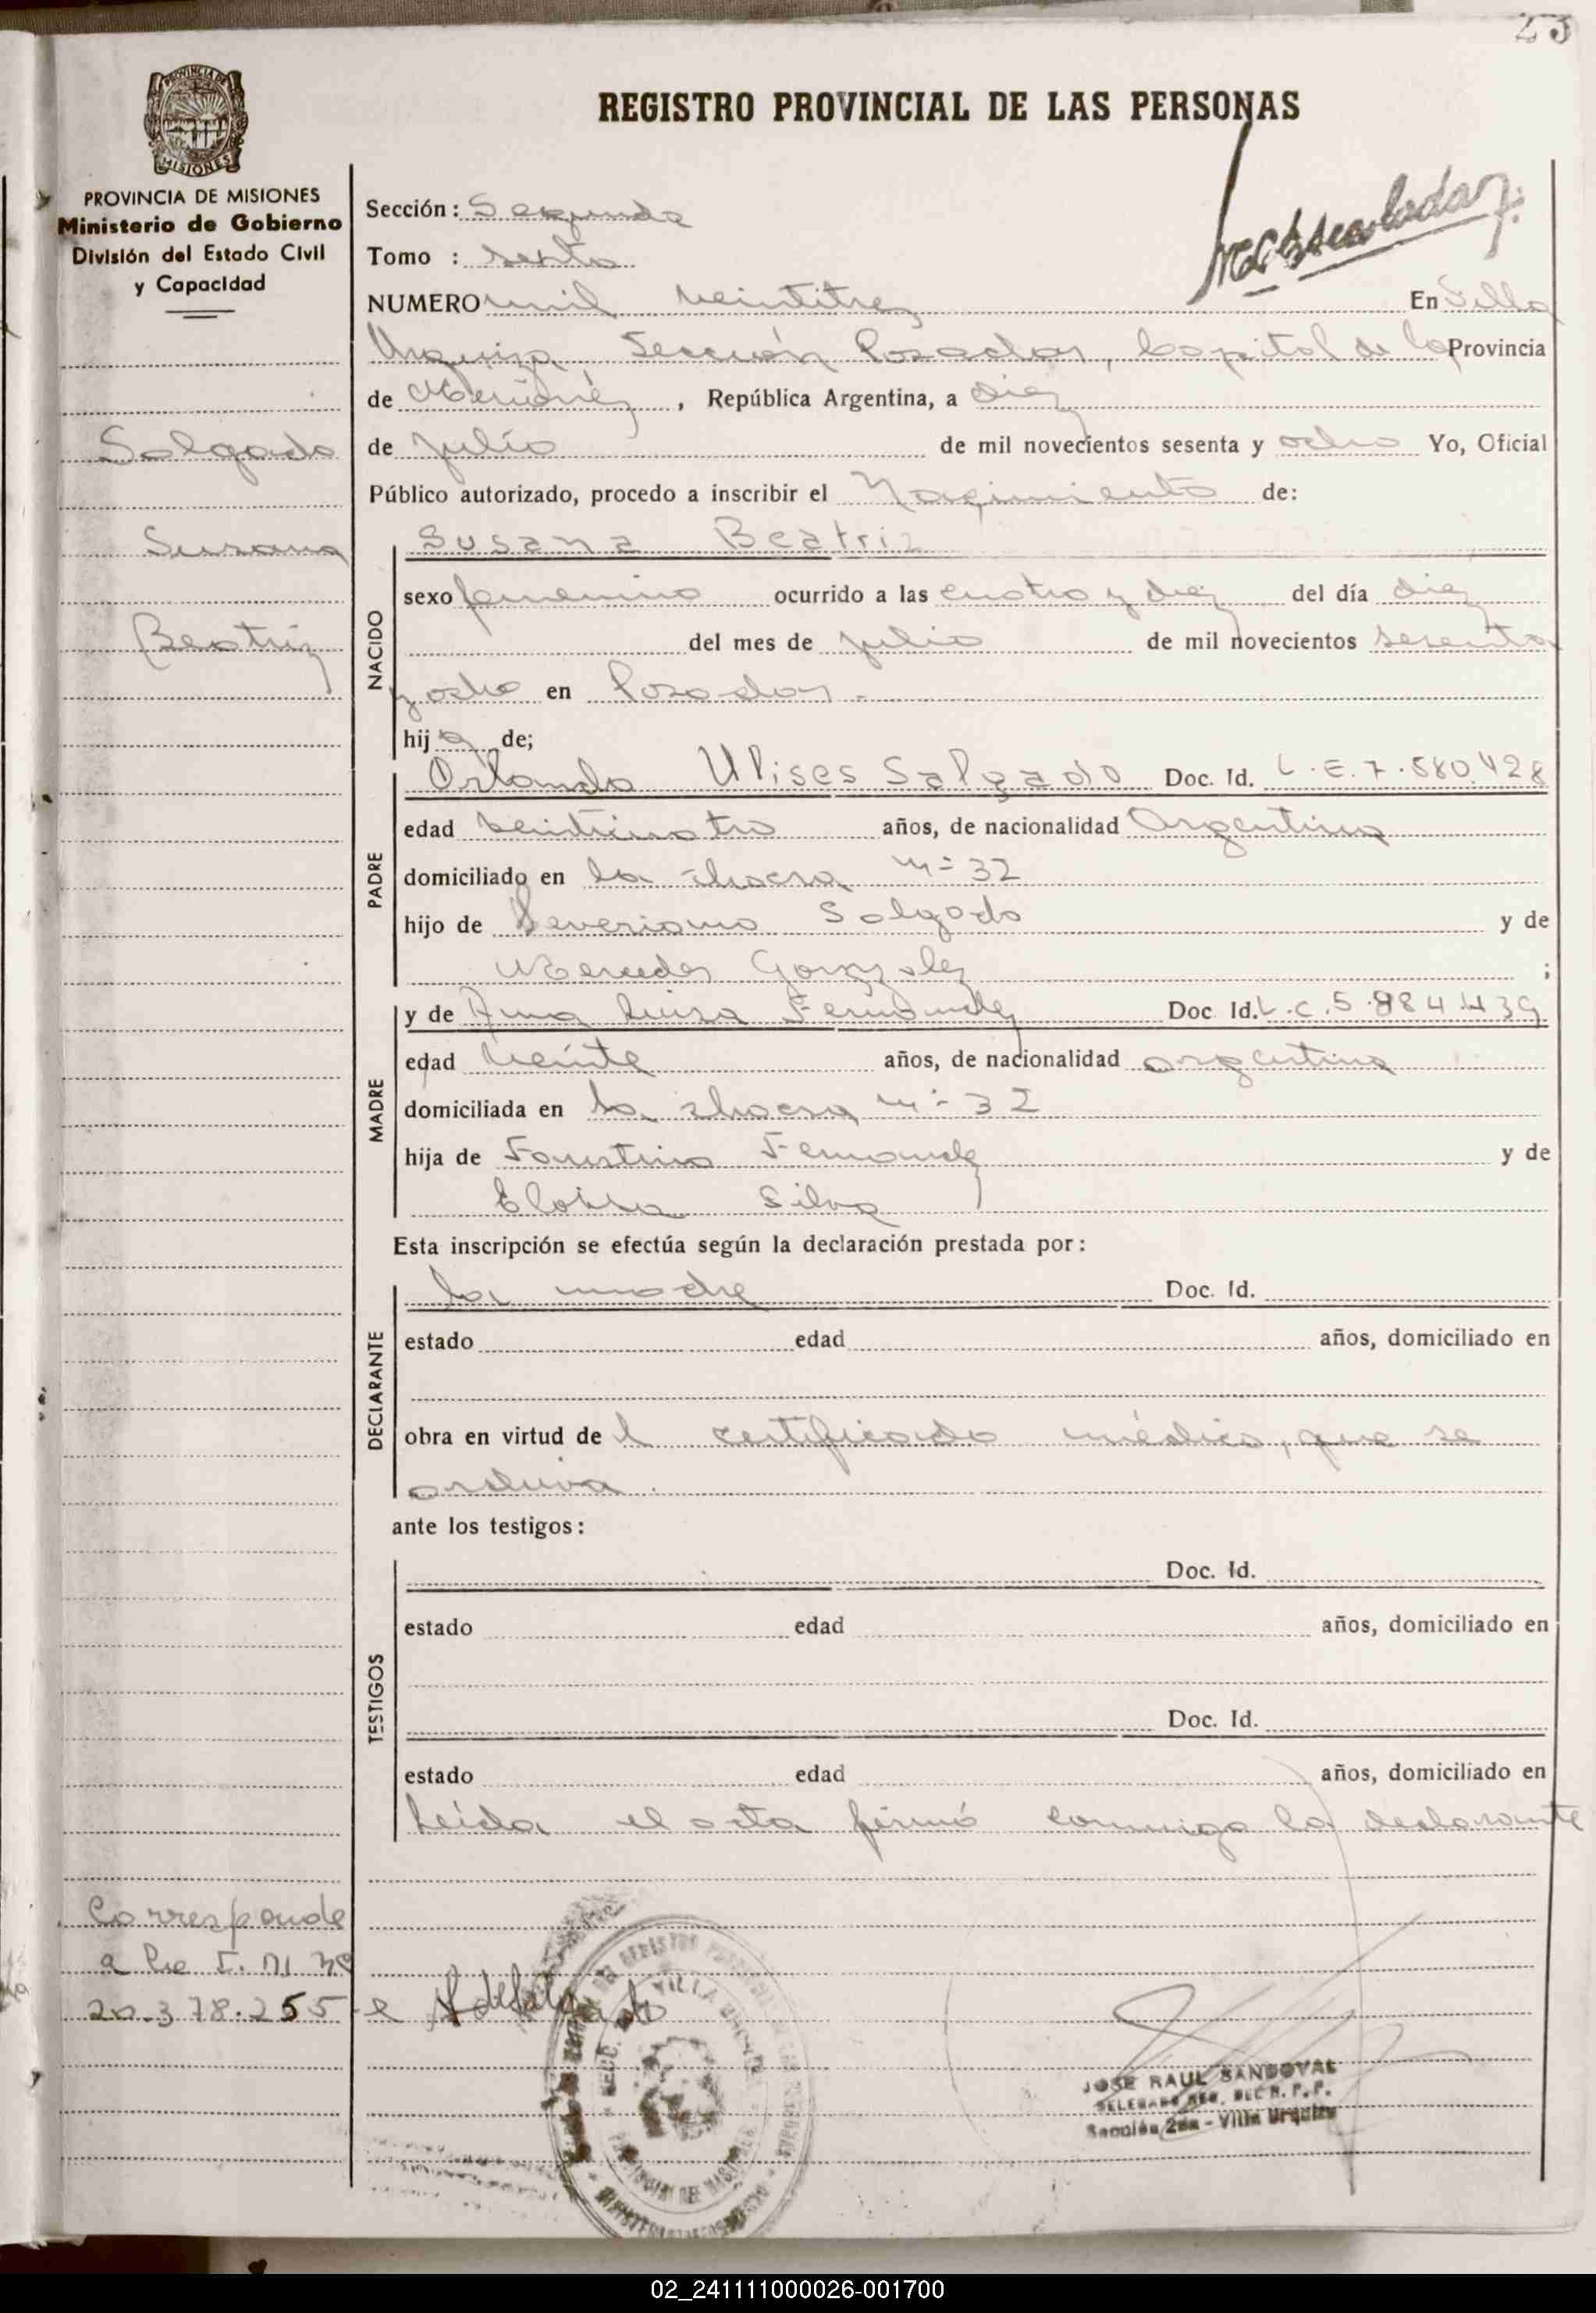 23
REGISTRO PROVINCIAL DE LAS PERSONAS
PROVINCIA DE MISIONES
MISIONES
PROVINCIA DE MISIONES
Ministerio de Gobierno
División del Estado Civil
y Capacidad
Salgado
Susana
Beatriz
Sección: Segunda
Tomo : sexto
NUMERO mil veintitres En Villa
Urquiza, Sección Posadas, Capital de la Provincia
de Misiones, República Argentina, a diez
de julio de mil novecientos sesenta y ocho Yo, Oficial
Público autorizado, procedo a inscribir el Nacimiento de:
NACIDO
Susana Beatriz
sexo femenino ocurrido a las cuatro y diez del día diez
del mes de julio de mil novecientos sesenta
y ocho en Posadas.
hija de;
PADRE
Orlando Ulises Salgado Doc. Id. L.E.7.580.428
edad veinticuatro años, de nacionalidad Argentina
domiciliado en la chacra nº 32
hijo de Severiano Salgado y de
Mercedes Gonzalez ;
MADRE
y de Ana Luisa Fernandez Doc Id. L.C.5.984.439
edad veinte años, de nacionalidad argentina
domiciliada en la chacra nº 32
hija de Faustino Fernandez y de
Eloisa Silva
Esta inscripción se efectúa según la declaración prestada por:
DECLARANTE
la madre Doc. Id.
estado edad años, domiciliado en
obra en virtud del certificado médico, que se
archiva.
ante los testigos:
TESTIGOS
Doc. Id.
estado edad años, domiciliado en
Doc. Id.
estado edad años, domiciliado en
Leída el acta firmó conmigo la declarante
Corresponde
a la
20.378.255
JOSE RAUL SANDOVAL
Sección 2da - Villa Urquiza
02_241111000026-001700